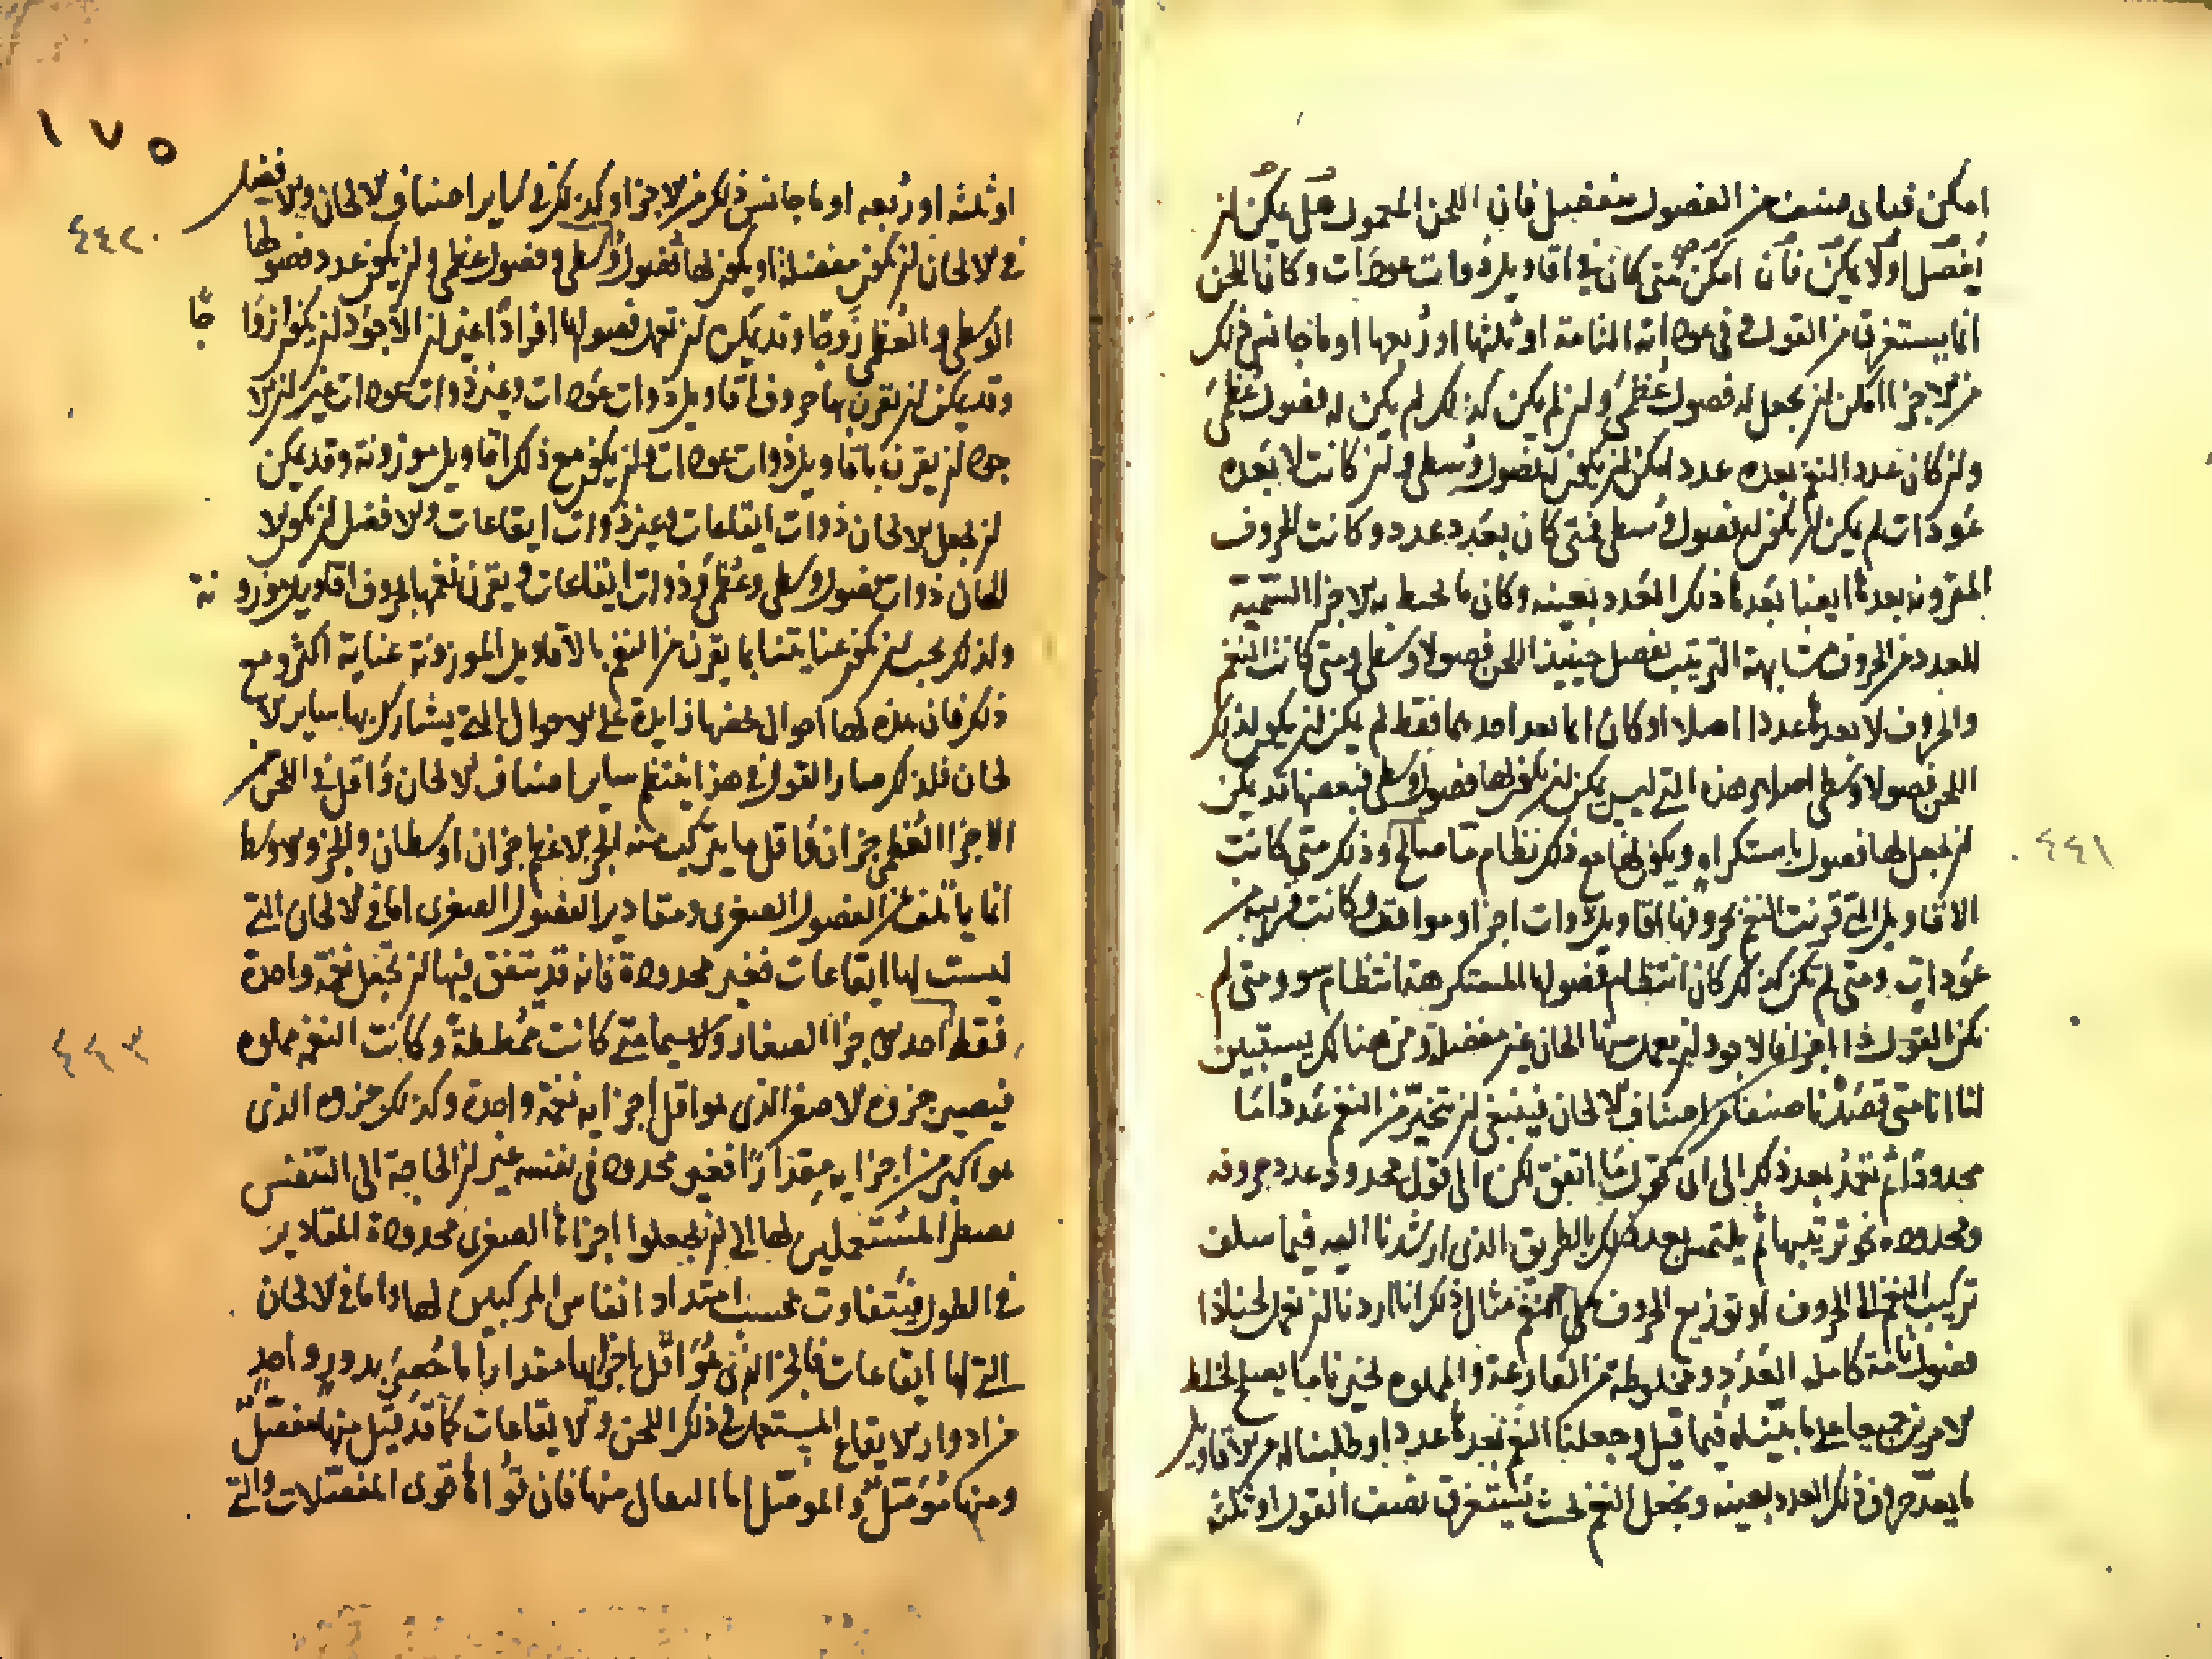 امكن فباى صنف من الفصول منفصل فان اللحن المعمول هل يمكن ان
يفصل او لا يمكن فان امكن متى كان فى اقاويل ذوات عودات وكان اللحن
انما يستغرق من القول فى عوداته التامة او ثلثها او ربعها او ما جانس ذلك
من الاجزا امكن ان يجعل له فصول عظمى وان لم يكن كذلك لم يكن له فصول عظمى
وان كان عدد النغم يعده عدد امكن ان يكون له فصول وسطى وان كانت لا يعده
عودات لم يكن ان يكون له فصول وسطى فمتى كان يعد بعدد وكانت الحروف
المقرونه بعدها ايضا يعدها ذلك العدد بعينه وكان ما يحيط به الاجزا السمية
للعدد من الحروف متشابهة الترتيب تفصل حينيذ اللحن فصولا وسطى ومتى كانت النغم
والحروف لا يعدها عدد اصلا او كان انما يعد احدهما فقط لم يكن ان يكون لذلك
اللحن فصولا وسطى اصلا وهذه التى ليس يمكن ان يكون لها فصول وسطى فبعضها قد يمكن
ان يجعل لها فصول باستكراه ويكون لها مع ذلك نظام ما صالح وذلك متى كانت
٤٤١
الاقاويل التى قرنت النغم بحروفها اقاويل ذوات اجزا وموافقه وكانت قريبه من
عودات ومتى لم تكن كذلك كان انتظام فصولها المستكرهة انتظام سو ومتى لم
يكن القول ذا اجزا فالاجود ان يعمل منها الحان غير مفصلة ومن هنالك يستبين
لنا انا متى قصدنا صنفا من اصناف الالحان فينبغى ان نتخير من النغم عددا ما
محدودا ثم نعمد بعد ذلك الى اى قول ما اتفق لكن الى قول محدود عدد حروفه
ومحدوده نحو ترتيبها ثم يلتمس بعد ذلك بالطريق الذى ارشدنا اليه فيما سلف
تركيب النغم الى الحروف او توزيع الحروف على النغم مثال ذلك انا اردنا ان نعمل لحنا ذا
فصول تامة كاملة العدد ومخلوطة من الفارغة والمملوه تخيرنا ما يصلح لخلط
الامرين جميعا على ما بيناه فيما قيل وجعلنا النغم يعدها عدد او طلبنا له من الاقاويل
ما يعد حروف ذلك العدد بعينه ونجعل النغم بحيث يستغرق نصف القول او ثلثه
١٧٥
او ثلثه او ربعه او ما جانس ذلك من الاجزا وكذلك فى ساير اصناف الالحان والافضل
٤٤٢
فى الالحان ان تكون مفصلة او يكون لها فصول وسطى وفصول عظمى وان يكون عدد فصولها
الوسطى والعظمى زوجا وقد يمكن ان تعمل فصولها افرادا غير ان الاجود ان يكون ازواجا
وقد يمكن ان تقرن بها حروف اقاويل ذوات عودات وغير ذوات عودات غير ان الا
جود ان يقرن باقاويل ذوات عودات وان يكون مع ذلك اقاويل موزونة وقد يمكن
ان نجعل الالحان ذوات ايقاعات وغير ذوات ايقاعات والافضل ان تكون الا
لحان ذوات فصول وسطى وعظمى وذوات ايقاعات ويقرن نغمها بحروف اقاويل موزونة
ولذلك يجب ان تكون عنايتنا بما يقرن من النغم بالاقاويل الموزونة عناية اكثر ومع
ذلك فان هذه لها احوال تخصها زايدة على الاحوال التى يشاركها بها ساير الا
لحان فلذلك صار القول فى هذا ينتظم ساير اصناف الالحان واقل فى اللحن من
الاجزا العظمى جزان واقل ما يتركب منه الجز الاعظم جزان اوسطان والجز والاوسط
انما يأتلف من الفصول الصغرى ومقادير الفصول الصغرى اما فى الالحان التى
ليست لها ايقاعات فغير محدودة فانه قد يتفق فيها ان تجعل نغمة واحدة
فقط احد الاجزا الصغار ولا سيما متى كانت ممططة وكانت النغمه مملوه
٤٤٣
فيصير جزوه الاصغر الذى هو اقل اجزايه نغمة واحدة وكذلك جزوه الذى
هو اكبر من اجزايه مقدارا فغير محدود فى نفسه غير ان الحاجة الى التنفس
يضطر المستعملين لها الى ان يجعلوا اجزاها الصغرى محدودة المقادير
فى الطول فيتفاوت بحسب امتداد انفاس المركبين لها واما فى الالحان
التى لها ايقاعات فالجز الذى هو اقل اجزايها مقدارا ما خصى بدور واحد
من ادوار الايقاع المستعمل فى ذلك اللحن والايقاعات كما قد قيل منها مفصل
ومنها موصل والموصل اما المعال منها فان قواها قوى المفصلات والتى